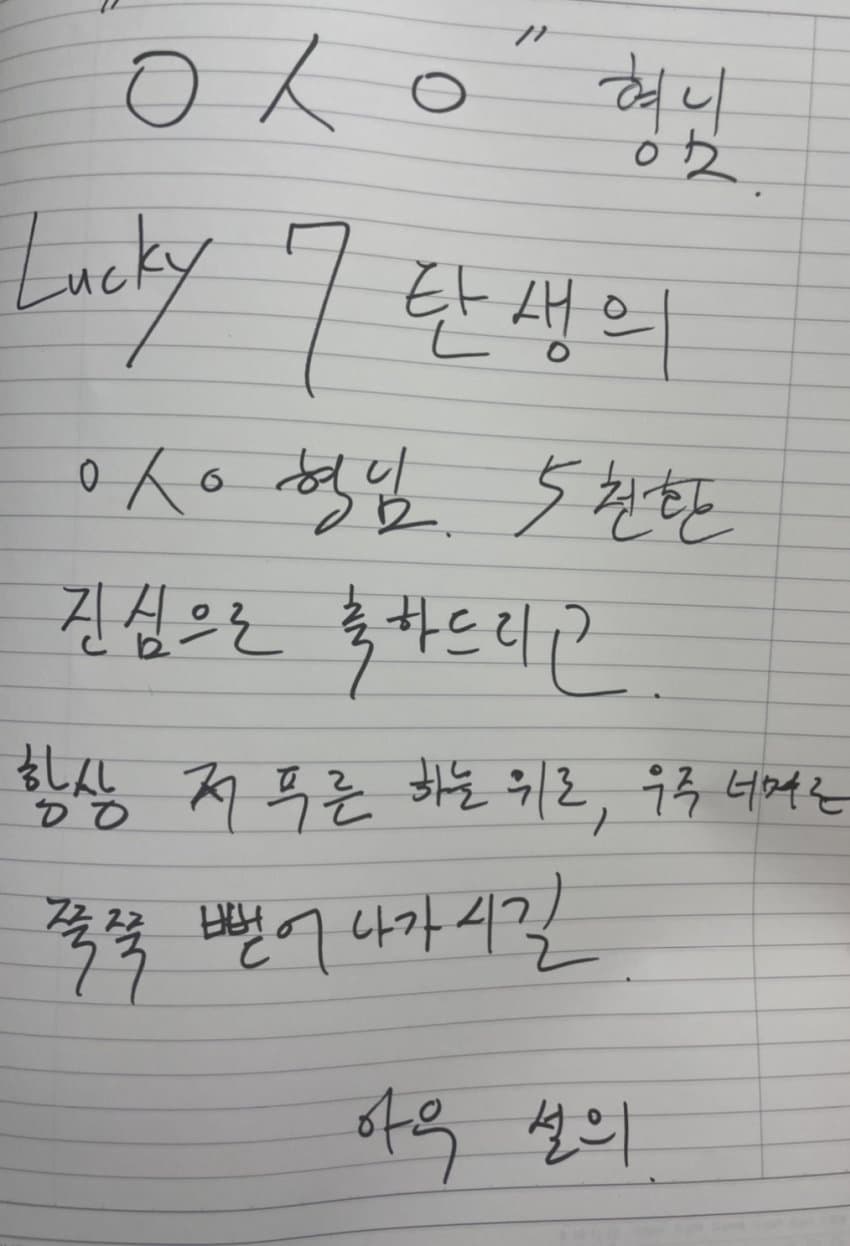 "ㅇㅅㅇ" 형님.
Lucky 7 탄생의
ㅇㅅㅇ 형님. 5천한
진심으로 축하드리고.
항상 저 푸른 하늘 위로, 우주 너머로
쭉쭉 뻗어나가시길.
아우 설의.